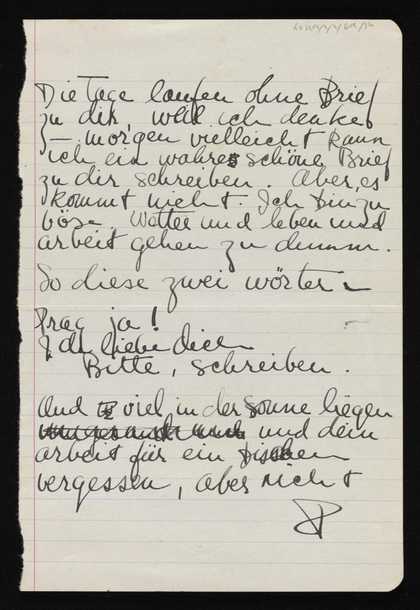 Die Tage laufen ohne Brief
zu dir, weil ich denke
— morgen vielleicht kann
ich ein wahre schöne Brief
zu dir schreiben. Aber, es
kommt nicht. Ich bin zu
böse. Wetter und leben und
arbeit gehen zu dumm.
So diese zwei wörter —
Frag ja!
I du liebe dich
Bitte, schreiben.
And viel in der Sonne liegen
und dein
arbeit für ein bischen
vergessen, aber nicht